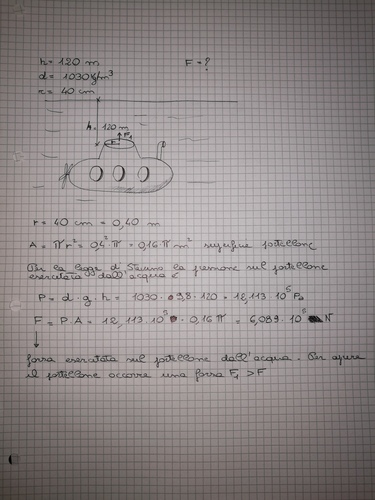 h = 120 m F = ?
d = 1030 kg/m³
r = 40 cm
h = 120 m
F₁
F
r = 40 cm = 0,40 m
A = πr² = 0,4² π = 0,16 π m² superficie portellone
Per la legge di Stevino la pressione sul portellone
esercitata dall'acqua è
P = d · g · h = 1030 · 9,8 · 120 = 12,113 · 10⁵ Pa
F = P · A = 12,113 · 10⁵ · 0,16 π = 6,089 · 10⁵ N
forza esercitata sul portellone dall'acqua. Per aprire
il portellone occorre una forza F₁ > F